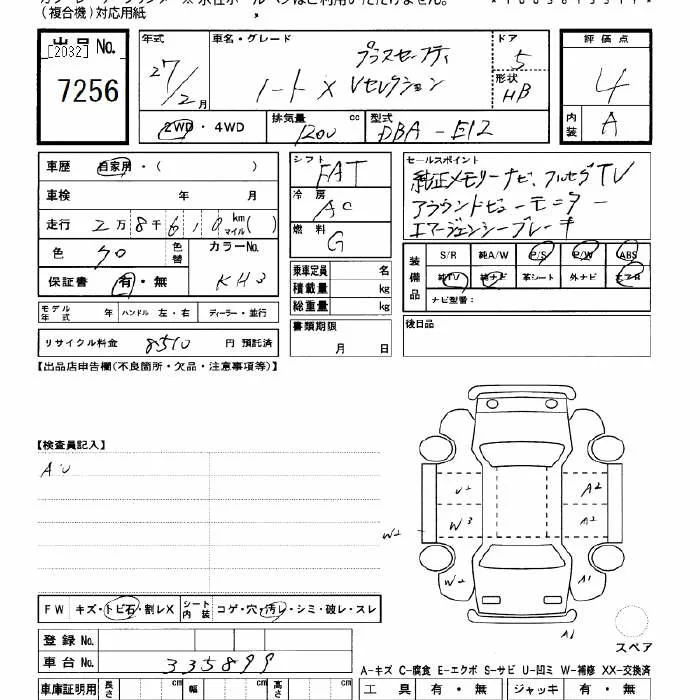 (複合機)対応用紙
出品 No. [2032] 7256
年式 27/2月
車名・グレード ノート X Vセレクション プラスセーフティ
ドア 5
形状 HB
評価点 4
内装 A
2WD・4WD
排気量 1200 cc
型式 DBA-E12
車歴 自家用・( )
車検 年 月
走行 2万8千610 km マイル( )
色 クロ 色替 カラーNo. KH3
保証書 有・無
モデル年式 年 ハンドル 左・右 ディーラー・並行
リサイクル料金 8510 円 預託済
シフト FAT
冷房 AC
燃料 G
乗車定員 名
積載量 kg
総重量 kg
書類期限
月 日
セールスポイント
純正メモリーナビ、フルセグTV
アラウンドビューモニター
エマージェンシーブレーキ
装備品 S/R 純A/W P/S P/W ABS
純TV 純ナビ 革シート 外ナビ エアB
ナビ型番:
後日品
【出品店申告欄(不良箇所・欠品・注意事項等)】
【検査員記入】
W2 A2
W2 W3 A2
W2 A1
A1
スペア
FW キズ・トビ石・割レX シート内装 コゲ・穴・汚レ・シミ・破レ・スレ
登録 No.
車台 No. 335899
A-キズ C-腐食 E-エクボ S-サビ U-凹ミ W-補修 XX-交換済
車庫証明用 長さ cm 幅 cm 高さ cm 工具 有・無 ジャッキ 有・無